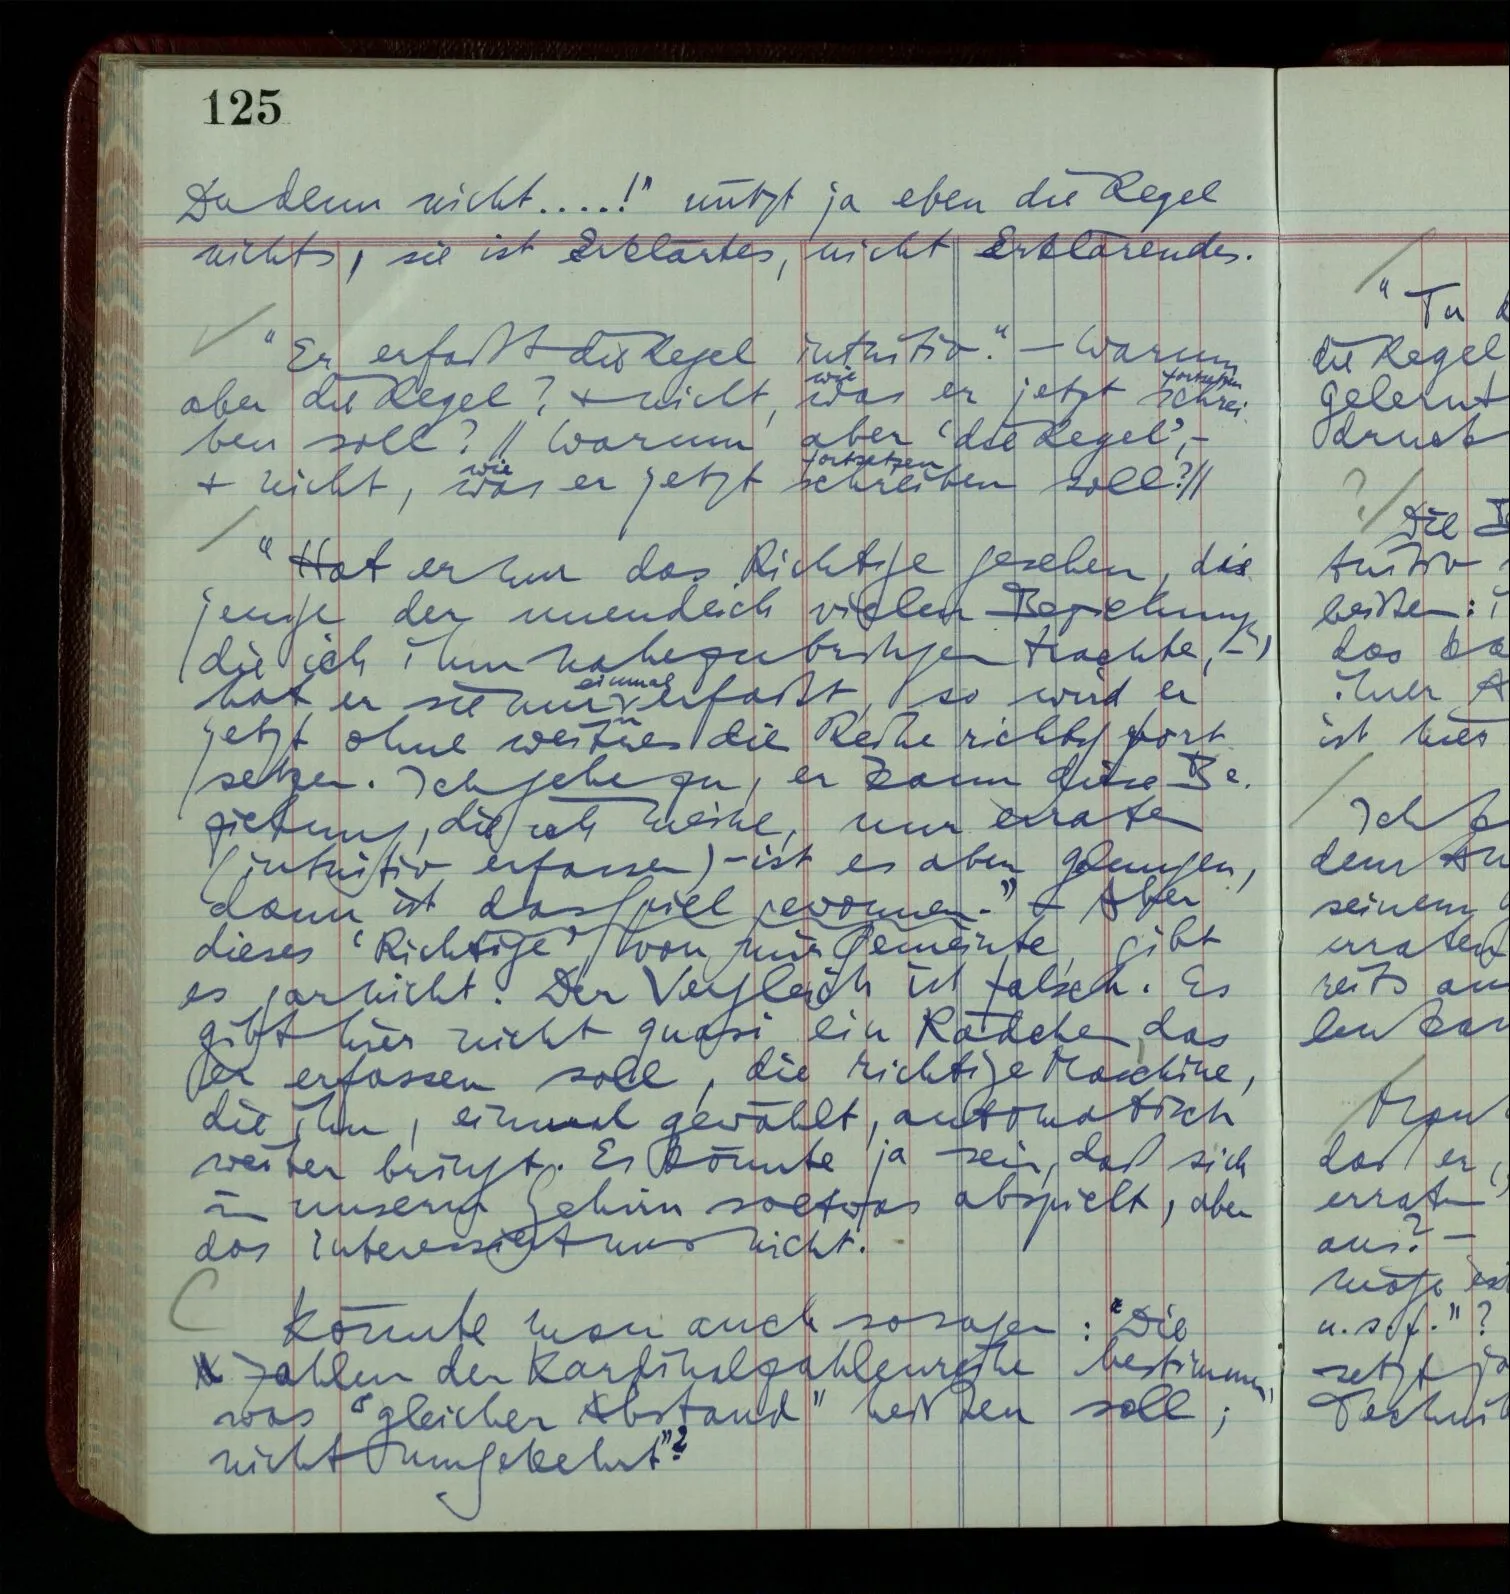 125
Du denn nicht.....!" nützt ja eben die Regel
nichts, sie ist Erklärtes, nicht Erklärendes.
"Er erfaßt die Regel intuitiv." – Warum
aber die Regel? & nicht, was er jetzt schrei-
wie fortsetzen
ben soll? // Warum aber 'die Regel', –
& nicht, was er jetzt schreiben soll? //
wie fortsetzen
"Hat er nur das Richtige gesehen, die-
jenige der unendlich vielen Beziehungen,
die ich ihm nahezubringen trachte, –
hat er sie nur einmal erfaßt, so wird er
jetzt ohne weiteres die Reihe richtig fort-
setzen. Ich gebe zu, er kann diese Be-
ziehung, die ich meine, nur erraten
(intuitiv erfassen) – ist es aber gelungen,
dann ist das Spiel gewonnen." – Aber
dieses 'Richtige', von mir Gemeinte, gibt
es garnicht. Der Vergleich ist falsch. Es
gibt hier nicht quasi ein Rädchen, das
er erfassen soll, die richtige Maschine,
die ihn, einmal gewählt, automatisch
weiter bringt. Es könnte ja sein, daß sich
in unserm Gehirn soetwas abspielt, aber
das interessiert uns nicht.
Könnte man auch so sagen: "Die
Zahlen der Kardinalzahlenreihe bestimmen,
was "gleicher Abstand" heißen soll;
nicht umgekehrt"?
"Tu
die Regel
gelernt
druck
? Die
tuitiv
heißen:
das
ihrer
ist hier
Ich
dem
seinem
erraten
reits
len
Man
daß er,
erraten
aus? –
möge
u.s.f."?
setzt
Technik